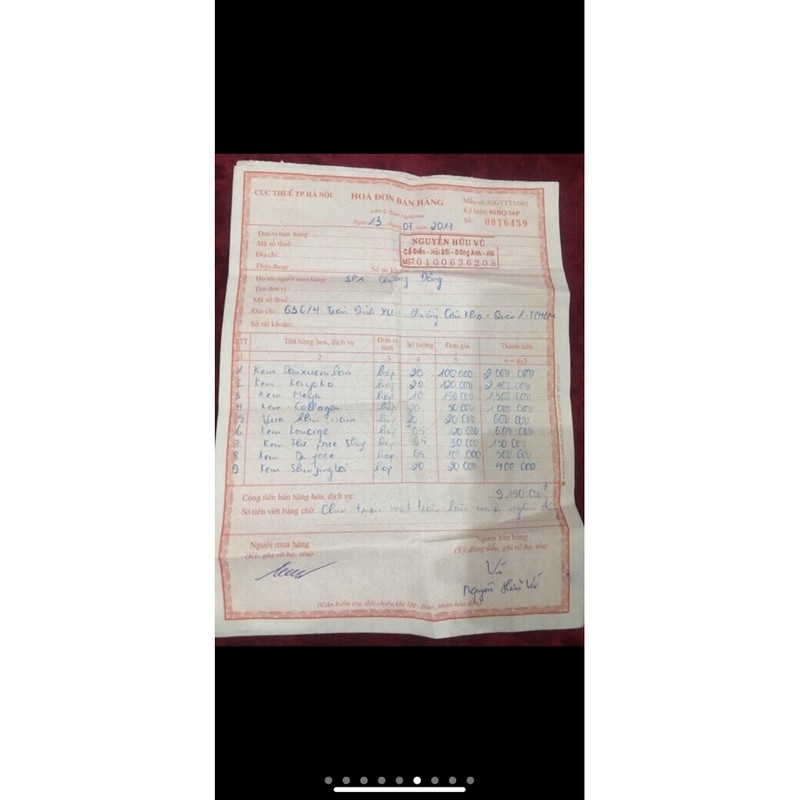 CỤC THUẾ TP HÀ NỘI
HOÁ ĐƠN BÁN HÀNG
Mẫu số: 02GTTT3/001
Ký hiệu: 01BQ/16P
Số: 0016459
Ngày 13 tháng 07 năm 2017
Đơn vị bán hàng:
Mã số thuế:
Địa chỉ:
Điện thoại: Số tài khoản
NGUYỄN HỮU VŨ
Cổ Điển - Hải Bối - Đông Anh - HN
MST: 0100636203
Họ tên người mua hàng: SPA Phương Đông
Tên đơn vị:
Mã số thuế:
Địa chỉ: 636/4 Trần Đình Xu - Phường Cầu Kho - Quận 1-TPHCM
Số tài khoản:
STT Tên hàng hoá, dịch vụ Đơn vị tính Số lượng Đơn giá Thành tiền
1 2 3 4 5 6=4x5
1 Kem hộp 20 100.000 2.000.000
2 Kem Kayoko hộp 20 120.000 2.400.000
3 Kem Meya hộp 10 150.000 1.500.000
4 Kem Collagen hộp 20 50.000 1.000.000
5 hộp 20 600.000
6 Kem Laneige hộp 05 120.000 600.000
7 Kem The face Shop hộp 05 30.000 150.000
8 Kem hộp 05 100.000 500.000
9 Kem hộp 20 20.000 400.000
Cộng tiền bán hàng hóa, dịch vụ: 9.150.000đ
Số tiền viết bằng chữ: Chín triệu một trăm năm mươi nghìn đồng
Người mua hàng
(Ký, ghi rõ họ, tên)
Người bán hàng
(Ký đóng dấu, ghi rõ họ, tên)
Vũ
Nguyễn Hữu Vũ
(Cần kiểm tra, đối chiếu khi lập, giao, nhận hóa đơn)